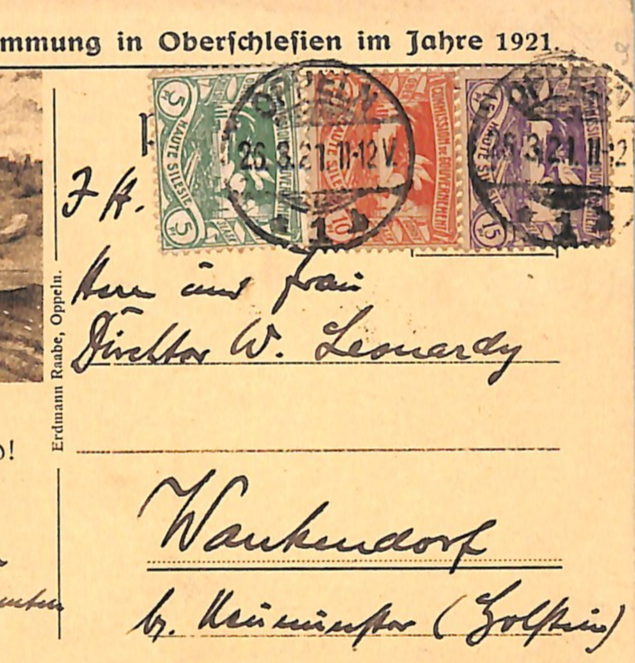 mmung in Oberschlesien im Jahre 1921.
5 HAUTE SILÉSIE 5
COMMISSION DE GOUVERNEMENT HAUTE SILÉSIE 10
15
OPPELN 26.3.21. 11-12 V. * 1
OPPELN 26.3.21. 11-12 * 1
Herr und Frau
Direktor W. Leonardy
Erdmann Raabe, Oppeln.
!
Wankendorf
bz. Neumünster (Holstein)